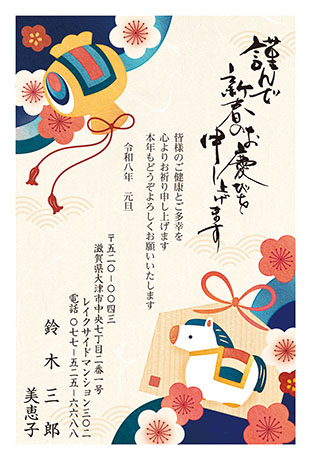 謹んで
新春のお慶びを
申し上げます
皆様のご健康とご多幸を
心よりお祈り申し上げます
本年もどうぞよろしくお願いいたします
令和八年　元旦
〒五二〇-〇〇四三
滋賀県大津市中央七丁目二番一号
レイクサイドマンション三〇二
電話 〇七七-五二五-六六八八
鈴木三郎
美恵子